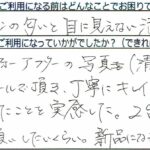 ご利用になる前はどんなことでお困りで
ンの匂いと目に見えない汚
ご利用になっていかがでしたか？（できれ
ビフォーアフターの写真を（清
ールで頂き、丁寧にキレイ
たことを実感した。2台
良いしたいくらい。
新品にな